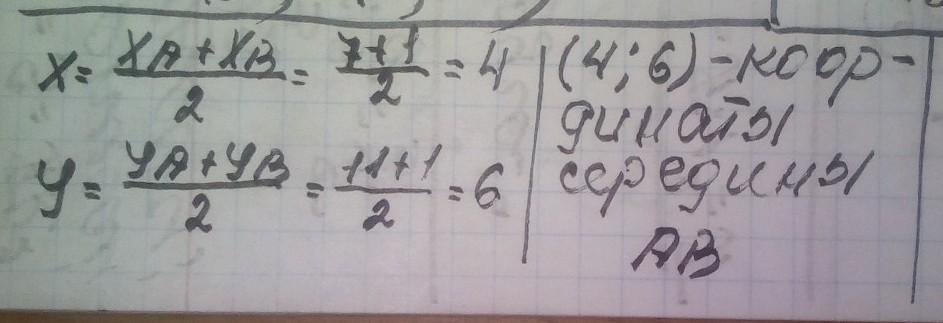 x = (xA + xB)/2 = (7+1)/2 = 4
y = (yA + yB)/2 = (11+1)/2 = 6
(4; 6) - коор-
динаты
середины
AB